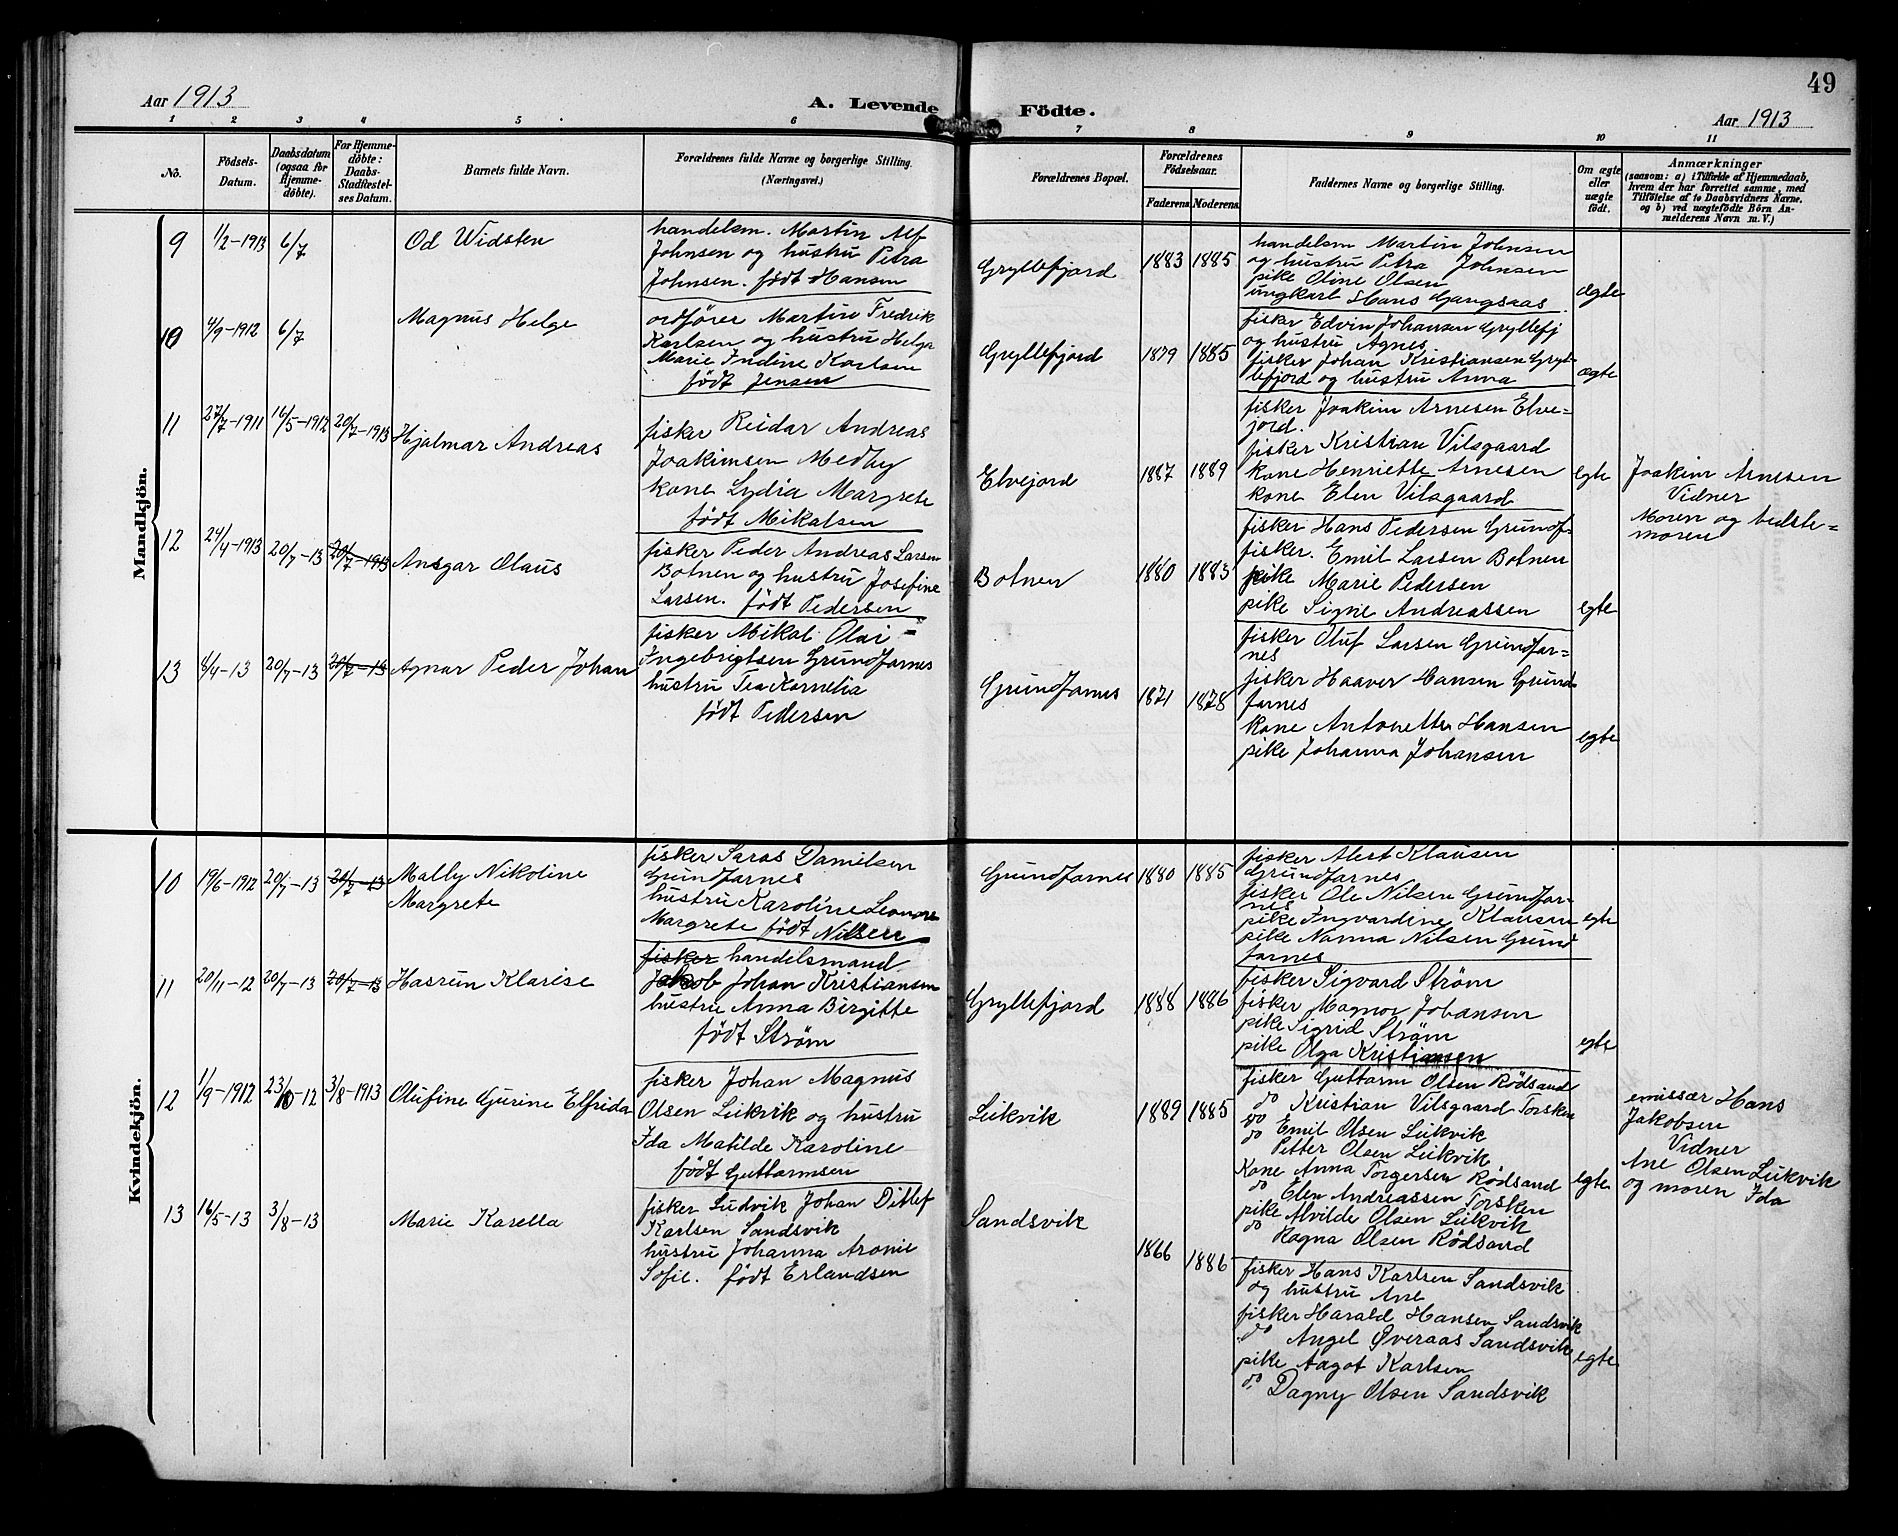 49
Aar 1913
A. Levende Födte.
Aar 1913
1 2 3 4 5 6 7 8 9 10 11
No.
Födsels-
Datum.
Daabsdatum
(ogsaa for
Hjemme-
döbte).
For Hjemme-
döbte:
Daabs-
Stadfæstel-
ses Datum.
Barnets fulde Navn.
Forældrenes fulde Navne og borgerlige Stilling.
(Næringsvei.)
Forældrenes Bopæl.
Forældrenes
Födselsaar.
Faderens. Moderens.
Faddernes Navne og borgerlige Stilling.
Om ægte
eller
uægte
födt.
Anmærkninger
(saasom: a) i Tilfælde af Hjemmedaab,
hvem der har forrettet samme, med
Tilföielse af to Daabsvidners Navne.
og b) ved uægtefödte Börn An-
melderens Navn m. V.)
Mandkjön.
9 1/2-1913 6/7 Od Widsten
handelsm. Martin Alf
Johnsen og hustru Petra
Johnsen. født Hansen
Gryllefjord 1883 1885
handelsm Martin Johnsen
og hustru Petra Johnsen
pike Oline Olsen
ungkarl Hans Gangsaas
ægte
10 4/9-1912 6/7 Magnus Helge
ordfører Martin Fredrik
Karlsen og hustru Helga
Marie Indine Karlsen
født Jensen
Gryllefjord 1879 1885
fisker Edvin Johansen Gryllefj
og hustru Agnes
fisker Johan Kristiansen Gryl-
lefjord og hustru Anna
ægte
11 27/7-1911 16/5-1912 20/7-1913 Hjalmar Andreas
fisker Reidar Andreas
Joakimsen Medby
kone Lydia Margrete
født Mikalsen
Elvejord 1887 1889
fisker Joakim Arnesen Elve-
jord.
fisker Kristian Vilsgaard
kone Henriette Arnesen
kone Elen Vilsgaard
egte
Joakim Arnesen
Vidner
Moren og bedste=
moren
12 24/4-1913 20/7-13 20/7-1913 Ansgar Olaus
fisker Peder Andreas Larsen
Botnen og hustru Josefine
Larsen. født Pedersen
Botnen 1880 1883
fisker Hans Pedersen Grundf-
fisker. Emil Larsen Botnen
pike Marie Pedersen
pike Signe Andreassen
egte
13 8/4-13 20/7-13 20/7-13 Agnar Peder Johan
fisker Mikal Olai =
Ingebrigtsen Grundfarnes
hustru Tea Kornelia
født Pedersen
Grundfarnes 1871 1878
fisker Oluf Larsen Grundfar=
nes
fisker Haaver Hansen Grund-
farnes
kone Antonette Hansen
pike Johanna Johansen
egte
Kvindekjön.
10 19/6-1912 20/7-13 20/7-13 Mally Nikoline
Margrete
fisker Saras Danielsen
Grundfarnes
hustru Karoline Leonore
Margrete født Nilsen
Grundfarnes 1880 1885
fisker Alert Klausen
Grundfarnes
fisker Ole Nilsen Grundfar-
nes
pike Ingvardine Klausen
pike Nanna Nilsen Grund
farnes
egte
11 20/11-12 20/7-13 20/7-13 Hasrun Klarise
fisker handelsmand
Jakob Johan Kristiansen
hustru Anna Birgitte
født Strøm
Gryllefjord 1888 1886
fisker Sigvard Strøm
fisker Magnor Johansen
pike Sigrid Strøm
pike Olga Kristiansen
egte
12 1/9-1912 23/10-12 3/8-1913 Olufine Gurine Elfrida
fisker Johan Magnus
Olsen Leikvik og hustru
Ida Matilde Karoline
født Guttormsen
Leikvik 1889 1885
fisker Guttorm Olsen Rödsand
do Kristian Vilsgaard Torsken
do Emil Olsen Leikvik
do Petter Olsen Leikvik
Kone Anna Torgersen Rödsand
do Elen Andreassen Torsken
pike Alvilde Olsen Leikvik
do Ragna Olsen Rödsand
egte
emissær Hans
Jakobsen
Vidner
Ane Olsen Leikvik
og moren Ida
13 16/5-13 3/8-13 Marie Karella
fisker Ludvik Johan Ditlef
Karlsen Sandsvik
hustru Johanna Aronie
Sofie. født Erlandsen
Sandsvik 1866 1886
fisker Hans Karlsen Sandsvik
og hustru Ane
fisker Harald Hansen Sandsvik
do Angel Øveraas Sandsvik
pike Aagot Karlsen
do Dagny Olsen Sandsvik
egte